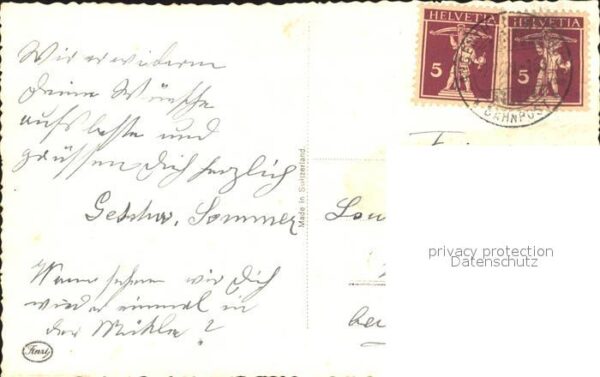 Wir erwidern
Deine Wünsche
aufs beste und
grüssen Dich herzlich
Geschw. Sommer
Wann sehen wir Dich
wieder einmal in
der Mühle?
Made in Switzerland.
HELVETIA
5
HELVETIA
5
BAHNPOST
privacy protection
Datenschutz